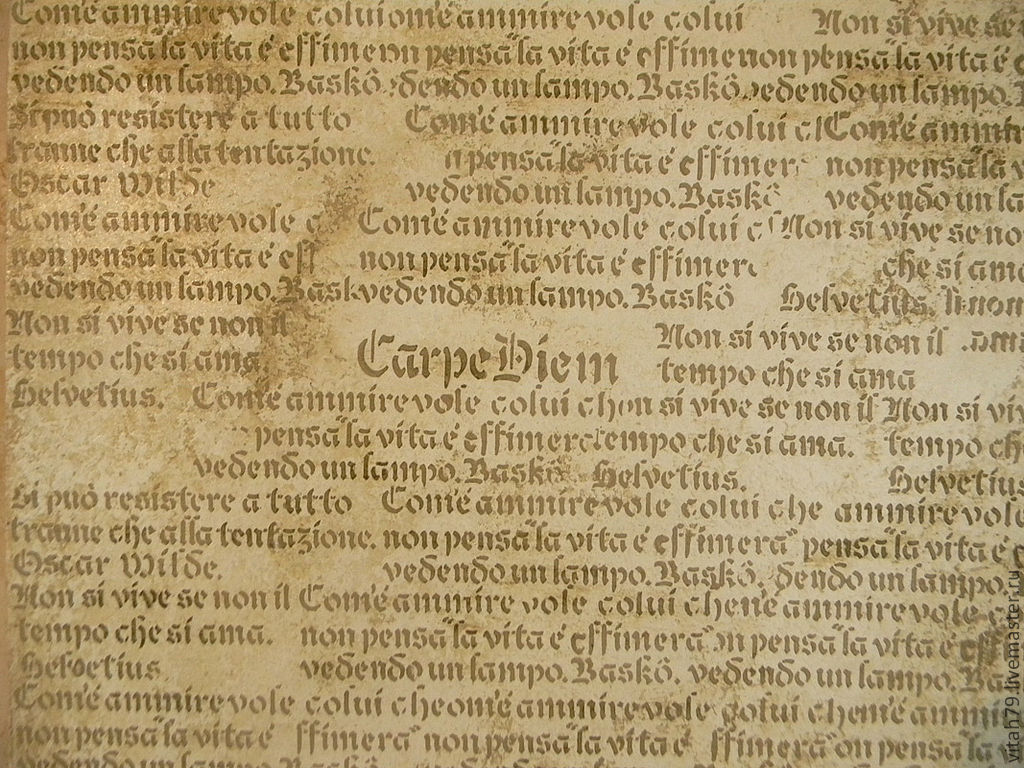 Com'è ammirevole colui om'è ammirevole colui Non si vive se
non pensa "la vita è effime on pensa "la vita è effime non pensa "la vita è e
vedendo un lampo. Baskô. dendo un lampo. Baskô. vedendo un lampo.
Si può resistere a tutto Com'è ammirevole colui c Com'è ammir
tranne che alla tentazione. n pensa "la vita è effimer non pensa "la v
Oscar Wilde vedendo un lampo. Baskô vedendo un la
Com'è ammirevole c Com'è ammirevole colui c Non si vive se no
non pensa "la vita è eff non pensa "la vita è effimer che si ama
vedendo un lampo. Bask vedendo un lampo. Baskô Helvetius. non
Non si vive se non il Non si vive se non il
tempo che si ama Carpe Diem tempo che si ama
Helvetius. Com'è ammirevole colui ch on si vive se non il Non si viv
pensa "la vita è effimera tempo che si ama. tempo ch
vedendo un lampo. Baskô Helvetius. Helvetius
Si può resistere a tutto Com'è ammirevole colui che ammirevole
tranne che alla tentazione. non pensa "la vita è effimera" pensa "la vita è e
Oscar Wilde. vedendo un lampo. Baskô. dendo un lampo.
Non si vive se non il Com'è ammirevole colui che n'è ammirevole c
tempo che si ama. non pensa "la vita è effimera" on pensa "la vita è eff
Helvetius vedendo un lampo. Baskô. vedendo un lampo. Ba
Com'è ammirevole colui che om'è ammirevole colui che m'è ammi
non pensa "la vita è ffimera" non pensa "la vita è ffimera" on pensa "la
vedendo un lampo. Baskô vedendo un lampo. Baskô vedendo un lam
vitah79.livemaster.ru